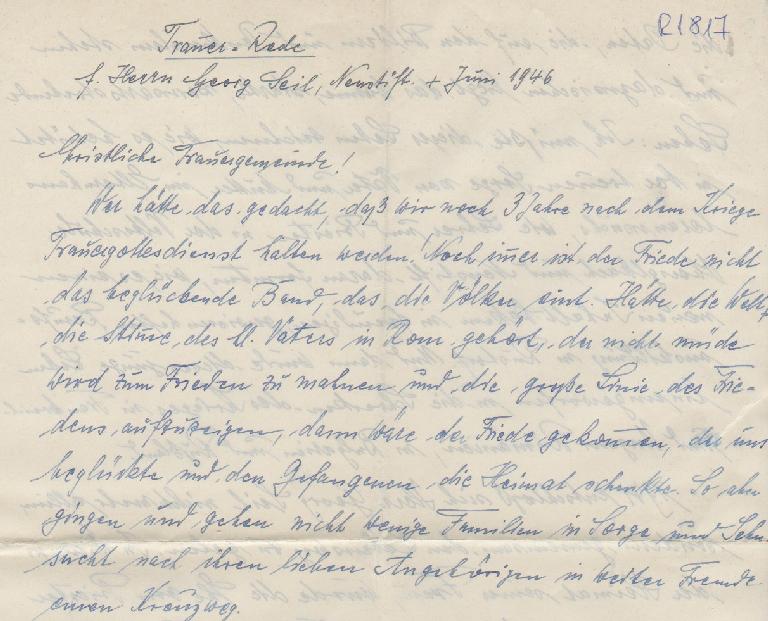 R1817
Trauer-Rede
f. Herrn Georg Seil, Neustift + Juni 1946
Christliche Trauergemeinde!
Wer hätte das gedacht, daß wir noch 3 Jahre nach dem Kriege
Trauergottesdienst halten werden! Noch im̅er ist der Friede nicht
das beglückende Band, das die Völker eint. Hätte die Welt
die Stim̅e des hl. Vaters in Rom gehört, der nicht müde
wird zum Frieden zu mahnen und die große Linie des Frie-
dens aufzuzeigen, dann wäre der Friede gekom̅en, der uns
beglückte und den Gefangenen die Heimat schenkte. So aber
gingen und gehen nicht wenige Familien in Sorge und Sehn
sucht nach ihren lieben Angehörigen in weiter Fremde
einen Kreuzweg.